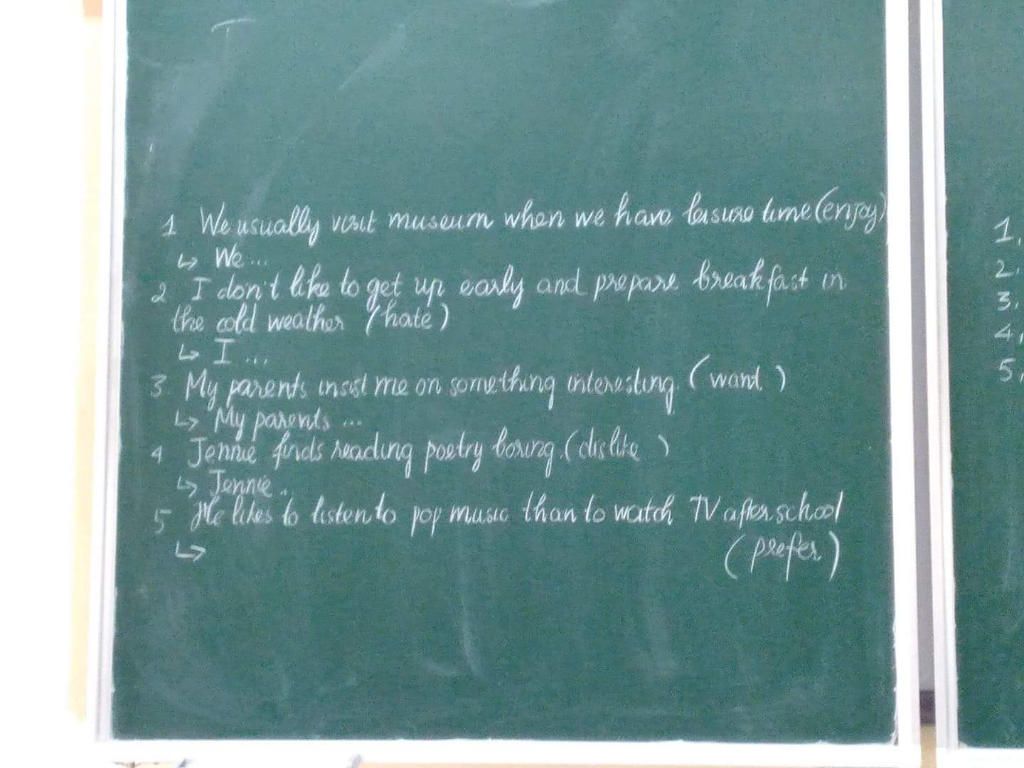 1 We usually visit museum when we have leisure time (enjoy)
↳ We...
2 I don't like to get up early and prepare breakfast in
the cold weather (hate)
↳ I ...
3. My parents insist me on something interesting. (want)
↳ My parents ...
4 Jennie finds reading poetry boring. (dislike)
↳ Jennie..
5 He likes to listen to pop music than to watch TV after school
↳ (prefer)
1.
2.
3.
4.
5.